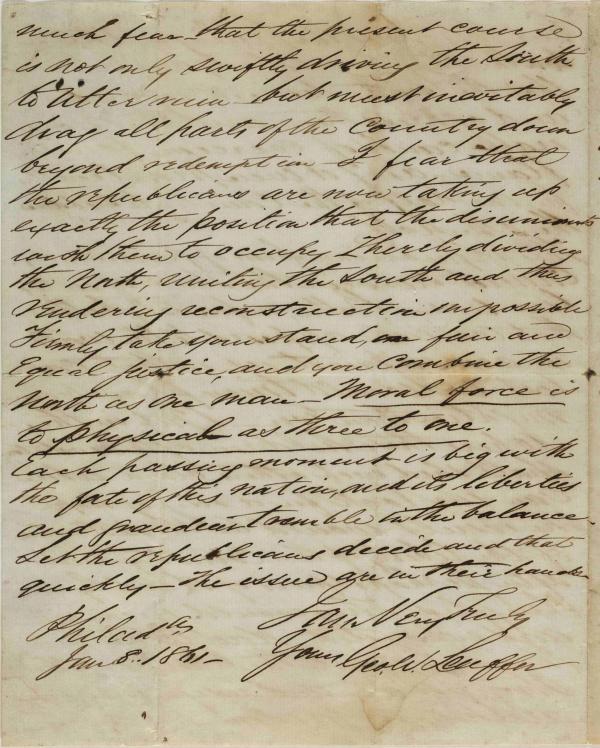 much fear that the present course
is not only swiftly driving the South
to utter ruin but must inevitably
drag all parts of the Country down
beyond redemption I fear that
the republicans are now taking up
exactly the position that the disunionists
wish them to occupy, thereby dividing
the North, uniting the South and thus
rendering reconstruction impossible
Firmly take your stand, on fair and
Equal justice, and you combine the
North as one man – Moral force is
to physical as three to one.
Each passing moment is big with
the fate of this nation, and its liberties
and grandeur tremble in the balance –
Let the republicans decide and that
quickly – the issue are in their hands
I am Very Truly
Philada
Jan 8. 1861 –
Yours Geo. W.